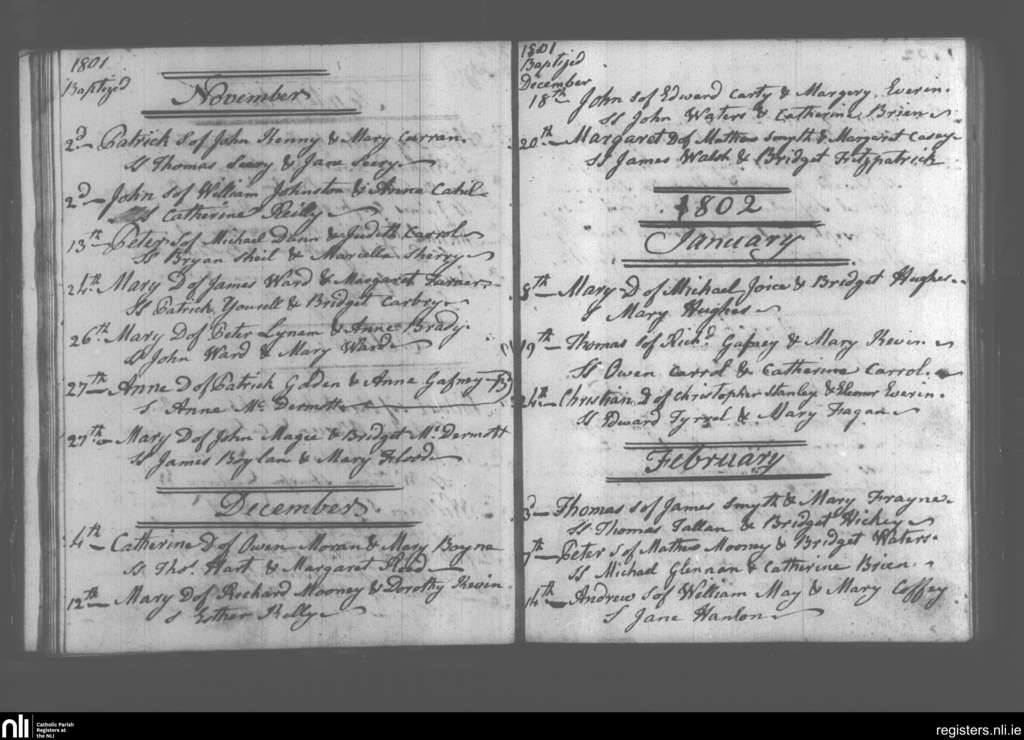 1801
Baptized
November
2d— Patrick S of John Kenny & Mary Curran.
Ss Thomas Seery & Jane Seery.
2d— John S of William Johnston & Anna Cahil—
Ss Catherine Reilly
13th— Peter S of Michael Dunn & Judith Carrol
Ss Bryan Sheil & Marcella Sherry
24th. Mary D of James Ward & Margaret Farner
Ss Patrick Yourell & Bridget Carbry
26th Mary D of Peter Lynam & Anne Brady.
Ss John Ward & Mary Ward
27th— Anne D of Patrick Golden & Anne Gafney
S Anne Mc Dermott
27th— Mary D of John Magee & Bridget Mc Dermott
Ss James Boylan & Mary Flood
December.
4th— Catherine D of Owen Moran & Mary Boyne
Ss Thos. Hart & Margaret Flood
12th— Mary D of Richard Mooney & Dorothy Kevin.
S Esther Kelly
1801
Baptized
December
18th— John S of Edward Carty & Margery Everin.
Ss John Waters & Catherine Brien
20th— Margaret D of Mathew Smyth & Margaret Casey
Ss James Walsh & Bridget Fitzpatrick
1802
January
8th— Mary D of Michael Joice & Bridget Hughes.
S Mary Hughes
19th— Thomas S of Richd. Gafney & Mary Kevin
Ss Owen Carrol & Catherine Carrol.
24th. Christian D of Christopher Stanley & Elenor Everin.
Ss Edward Tyrrel & Mary Fagan
February
3d— Thomas S of James Smyth & Mary Frayne.
Ss Thomas Tallan & Bridget Hickey
7th— Peter S of Mathew Mooney & Bridget Waters.
Ss Michael Glennan & Catherine Brien.
14th— Andrew S of William May & Mary Coffey
S Jane Hanlon
nli Catholic Parish
Registers at
the NLI
registers.nli.ie